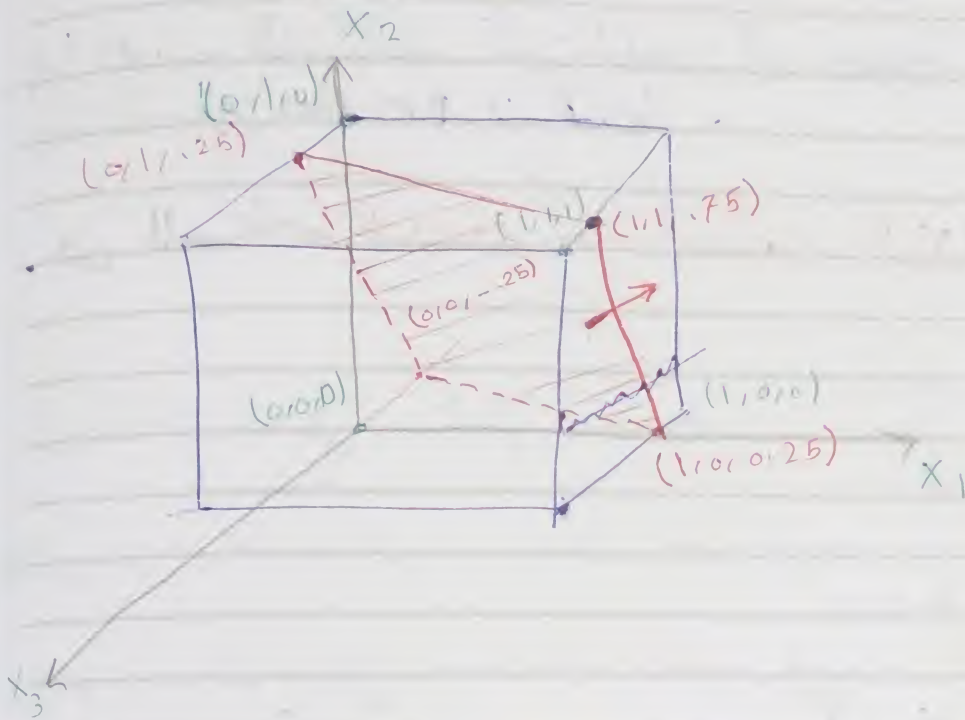 X2
(0,1,0)
(0,1,.25)
(1,1,1)
(1,1,.75)
(0,0,-.25)
(0,0,0)
(1,0,0)
(1,0,0.25)
X1
X3